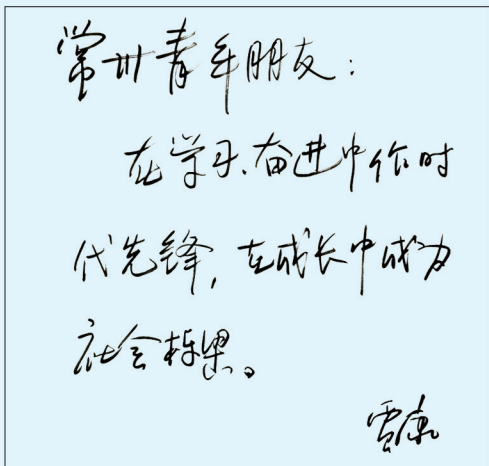 常州青年朋友：
在学习、奋进中作时
代先锋，在成长中成为
社会栋梁。
贾康